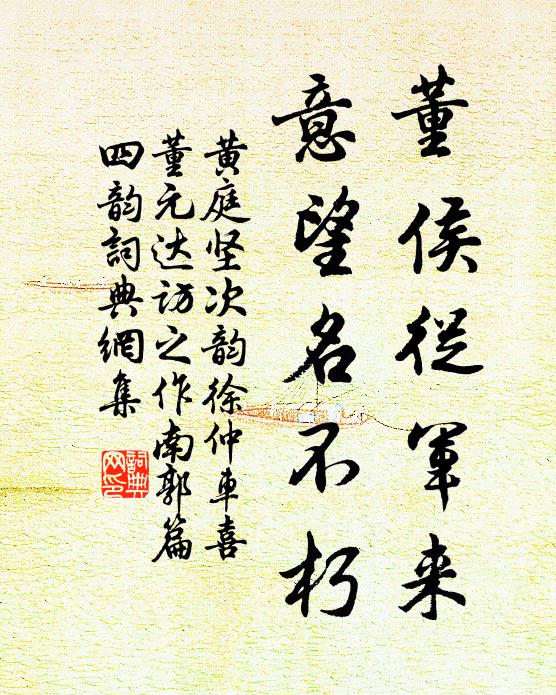 董侯従军来
意望名不朽
黄庭坚次韵徐仲車喜
董元达访之作南郭篇
四韵詞典網集
詞典网印